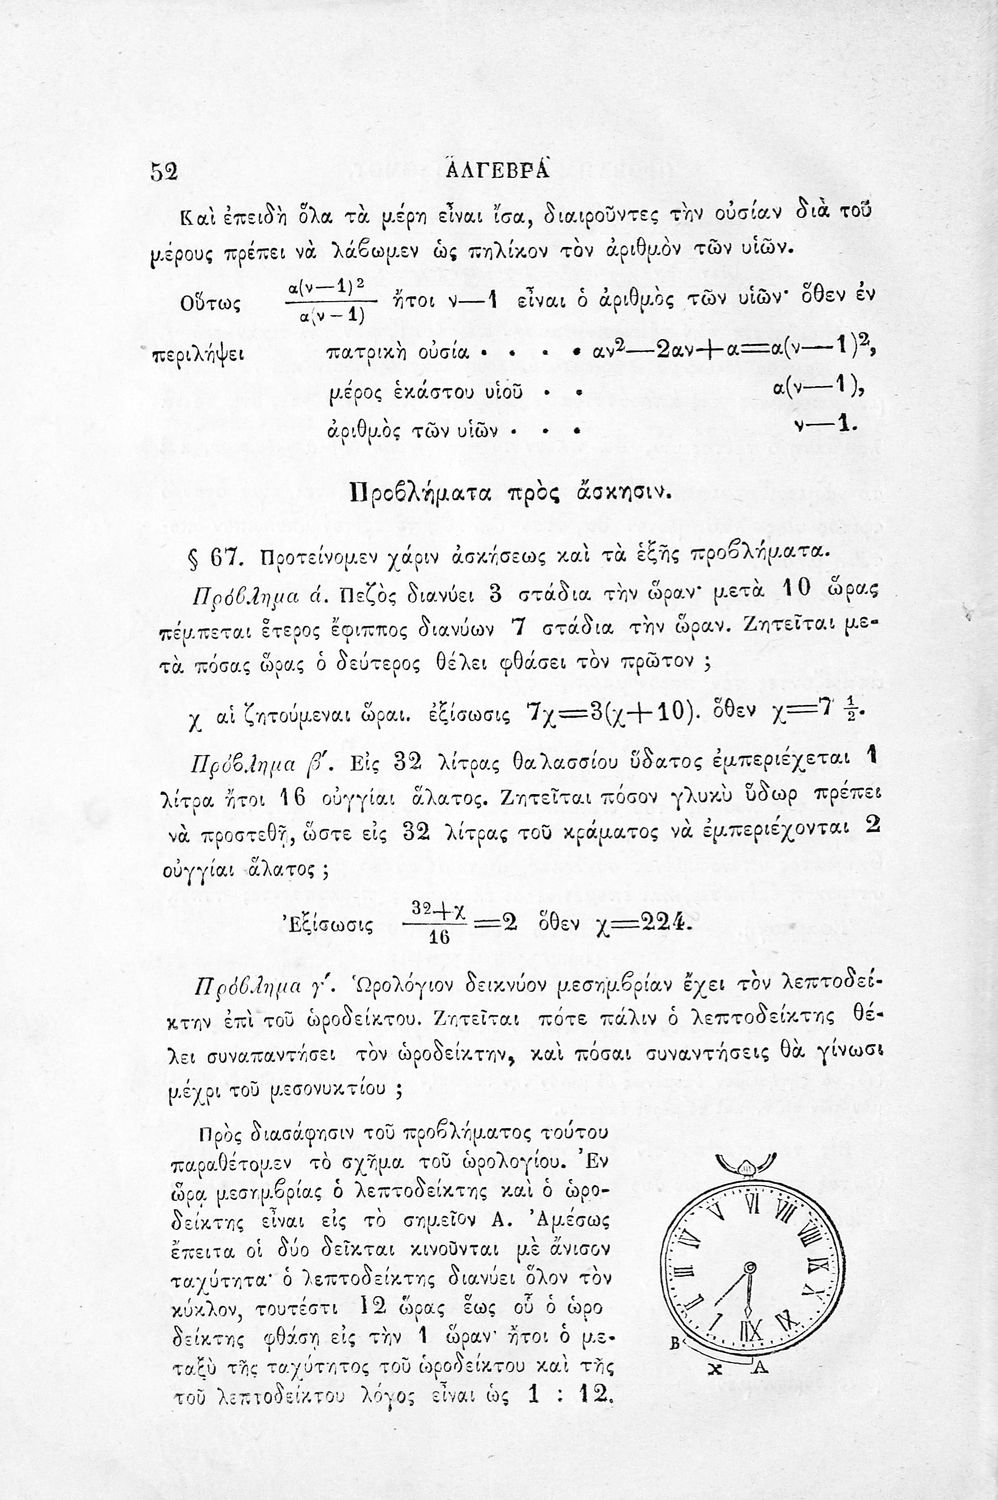 52 ΑΛΓΕΒΡΑ
Καὶ ἐπειδὴ ὅλα τὰ μέρη εἶναι ἴσα, διαιροῦντες τὴν οὐσίαν διὰ τοῦ
μέρους πρέπει νὰ λάβωμεν ὡς πηλίκον τὸν ἀριθμὸν τῶν υἱῶν.
Οὕτως α(ν—1)² / α(ν—1) ἤτοι ν—1 εἶναι ὁ ἀριθμὸς τῶν υἱῶν· ὅθεν ἐν
περιλήψει πατρικὴ οὐσία . . . . αν²—2αν+α=α(ν—1)²,
μέρος ἑκάστου υἱοῦ . . α(ν—1),
ἀριθμὸς τῶν υἱῶν . . . ν—1.
Προβλήματα πρὸς ἄσκησιν.
§ 67. Προτείνομεν χάριν ἀσκήσεως καὶ τὰ ἑξῆς προβλήματα.
Πρόβλημα ά. Πεζὸς διανύει 3 στάδια τὴν ὥραν· μετὰ 10 ὥρας
πέμπεται ἕτερος ἔφιππος διανύων 7 στάδια τὴν ὥραν. Ζητεῖται με-
τὰ πόσας ὥρας ὁ δεύτερος θέλει φθάσει τὸν πρῶτον ;
χ αἱ ζητούμεναι ὧραι. ἐξίσωσις 7χ=3(χ+10). ὅθεν χ=7 ½.
Πρόβλημα β΄. Εἰς 32 λίτρας θαλασσίου ὕδατος ἐμπεριέχεται 1
λίτρα ἤτοι 16 οὐγγίαι ἅλατος. Ζητεῖται πόσον γλυκὺ ὕδωρ πρέπει
νὰ προστεθῇ, ὥστε εἰς 32 λίτρας τοῦ κράματος νὰ ἐμπεριέχονται 2
οὐγγίαι ἅλατος ;
Ἐξίσωσις 32+χ / 16 =2 ὅθεν χ=224.
Πρόβλημα γ΄. Ὡρολόγιον δεικνύον μεσημβρίαν ἔχει τὸν λεπτοδεί-
κτην ἐπὶ τοῦ ὡροδείκτου. Ζητεῖται πότε πάλιν ὁ λεπτοδείκτης θέ-
λει συναπαντήσει τὸν ὡροδείκτην, καὶ πόσαι συναντήσεις θὰ γίνωσι
μέχρι τοῦ μεσονυκτίου ;
Πρὸς διασάφησιν τοῦ προβλήματος τούτου
παραθέτομεν τὸ σχῆμα τοῦ ὡρολογίου. Ἐν
ὥρᾳ μεσημβρίας ὁ λεπτοδείκτης καὶ ὁ ὡρο-
δείκτης εἶναι εἰς τὸ σημεῖον Α. Ἀμέσως
ἔπειτα οἱ δύο δεῖκται κινοῦνται μὲ ἄνισον
ταχύτητα· ὁ λεπτοδείκτης διανύει ὅλον τὸν
κύκλον, τουτέστι 12 ὥρας ἕως οὗ ὁ ὡρο
δείκτης φθάσῃ εἰς τὴν 1 ὥραν· ἤτοι ὁ με-
ταξὺ τῆς ταχύτητος τοῦ ὡροδείκτου καὶ τῆς
τοῦ λεπτοδείκτου λόγος εἶναι ὡς 1 : 12.
I II III IV V VI VII VIII IX X XI XII
B X A